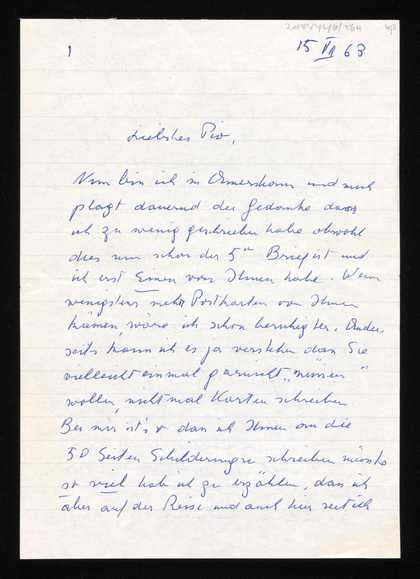 1
15 VII 63
Liebstes Pio,
Nun bin ich in und mich
plagt dauernd der Gedanke dass
ich zu wenig geschrieben habe obwohl
dies nun schon der 5te Brief ist und
ich erst Einen von Ihnen habe. Wenn
wenigstens mehr Postkarten von Ihnen
kämen, wäre ich schon beruhigter. Ander-
seits kann ich es ja verstehen dass Sie
vielleicht einmal garnicht „müssen"
wollen, nicht mal Karten schreiben
Bei mir ist's so dass ich Ihnen an die
50 Seiten Schilderungen schreiben müsste
so viel hab ich zu erzählen, dass ich
aber auf der Reise und auch hier